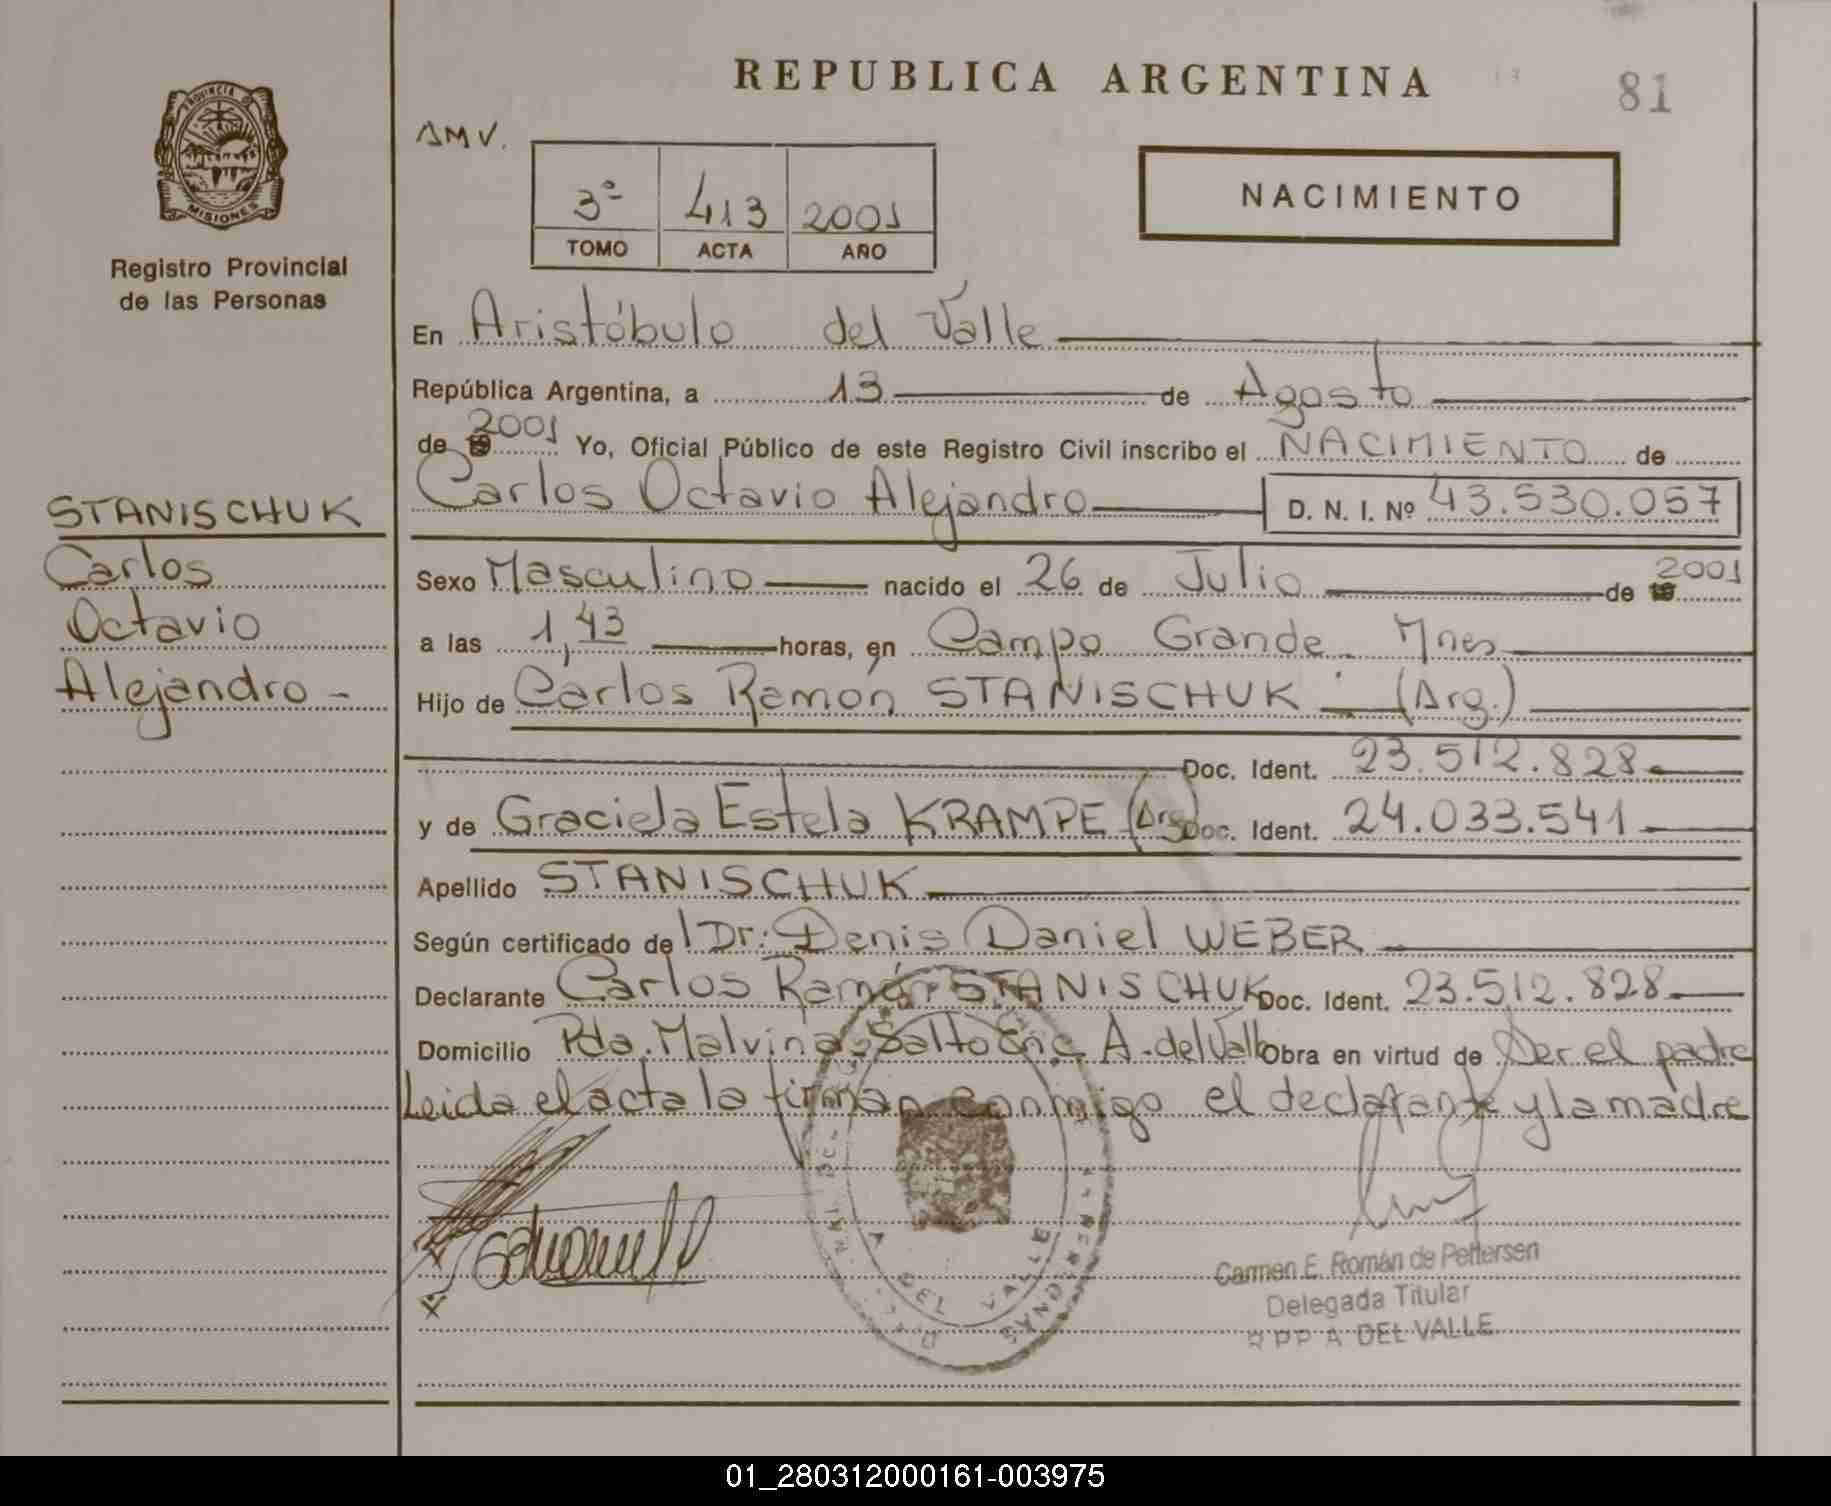 REPUBLICA ARGENTINA
81
PROVINCIA DE
MISIONES
Registro Provincial
de las Personas
AMV.
3º 413 2001
TOMO ACTA AÑO
NACIMIENTO
En Aristóbulo del Valle
República Argentina, a 13 de Agosto
de 2001 Yo, Oficial Público de este Registro Civil inscribo el NACIMIENTO de
Carlos Octavio Alejandro D. N. I. Nº 43.530.057
STANISCHUK
Carlos
Octavio
Alejandro -
Sexo Masculino nacido el 26 de Julio de 2001
a las 1,43 horas, en Campo Grande. Mnes
Hijo de Carlos Ramón STANISCHUK (Arg.)
Doc. Ident. 23.512.828
y de Graciela Estela KRAMPE (Arg) Doc. Ident. 24.033.541
Apellido STANISCHUK
Según certificado del Dr: Denis Daniel WEBER
Declarante Carlos Ramón STANISCHUK Doc. Ident. 23.512.828
Domicilio Pda. Malvinas Salto Enc A. del Valle Obra en virtud de Ser el padre
Leida el acta la firman conmigo el declarante y la madre
A. DEL VALLE
Carmen E. Román de Pettersen
Delegada Titular
R P P A DEL VALLE
01_280312000161-003975